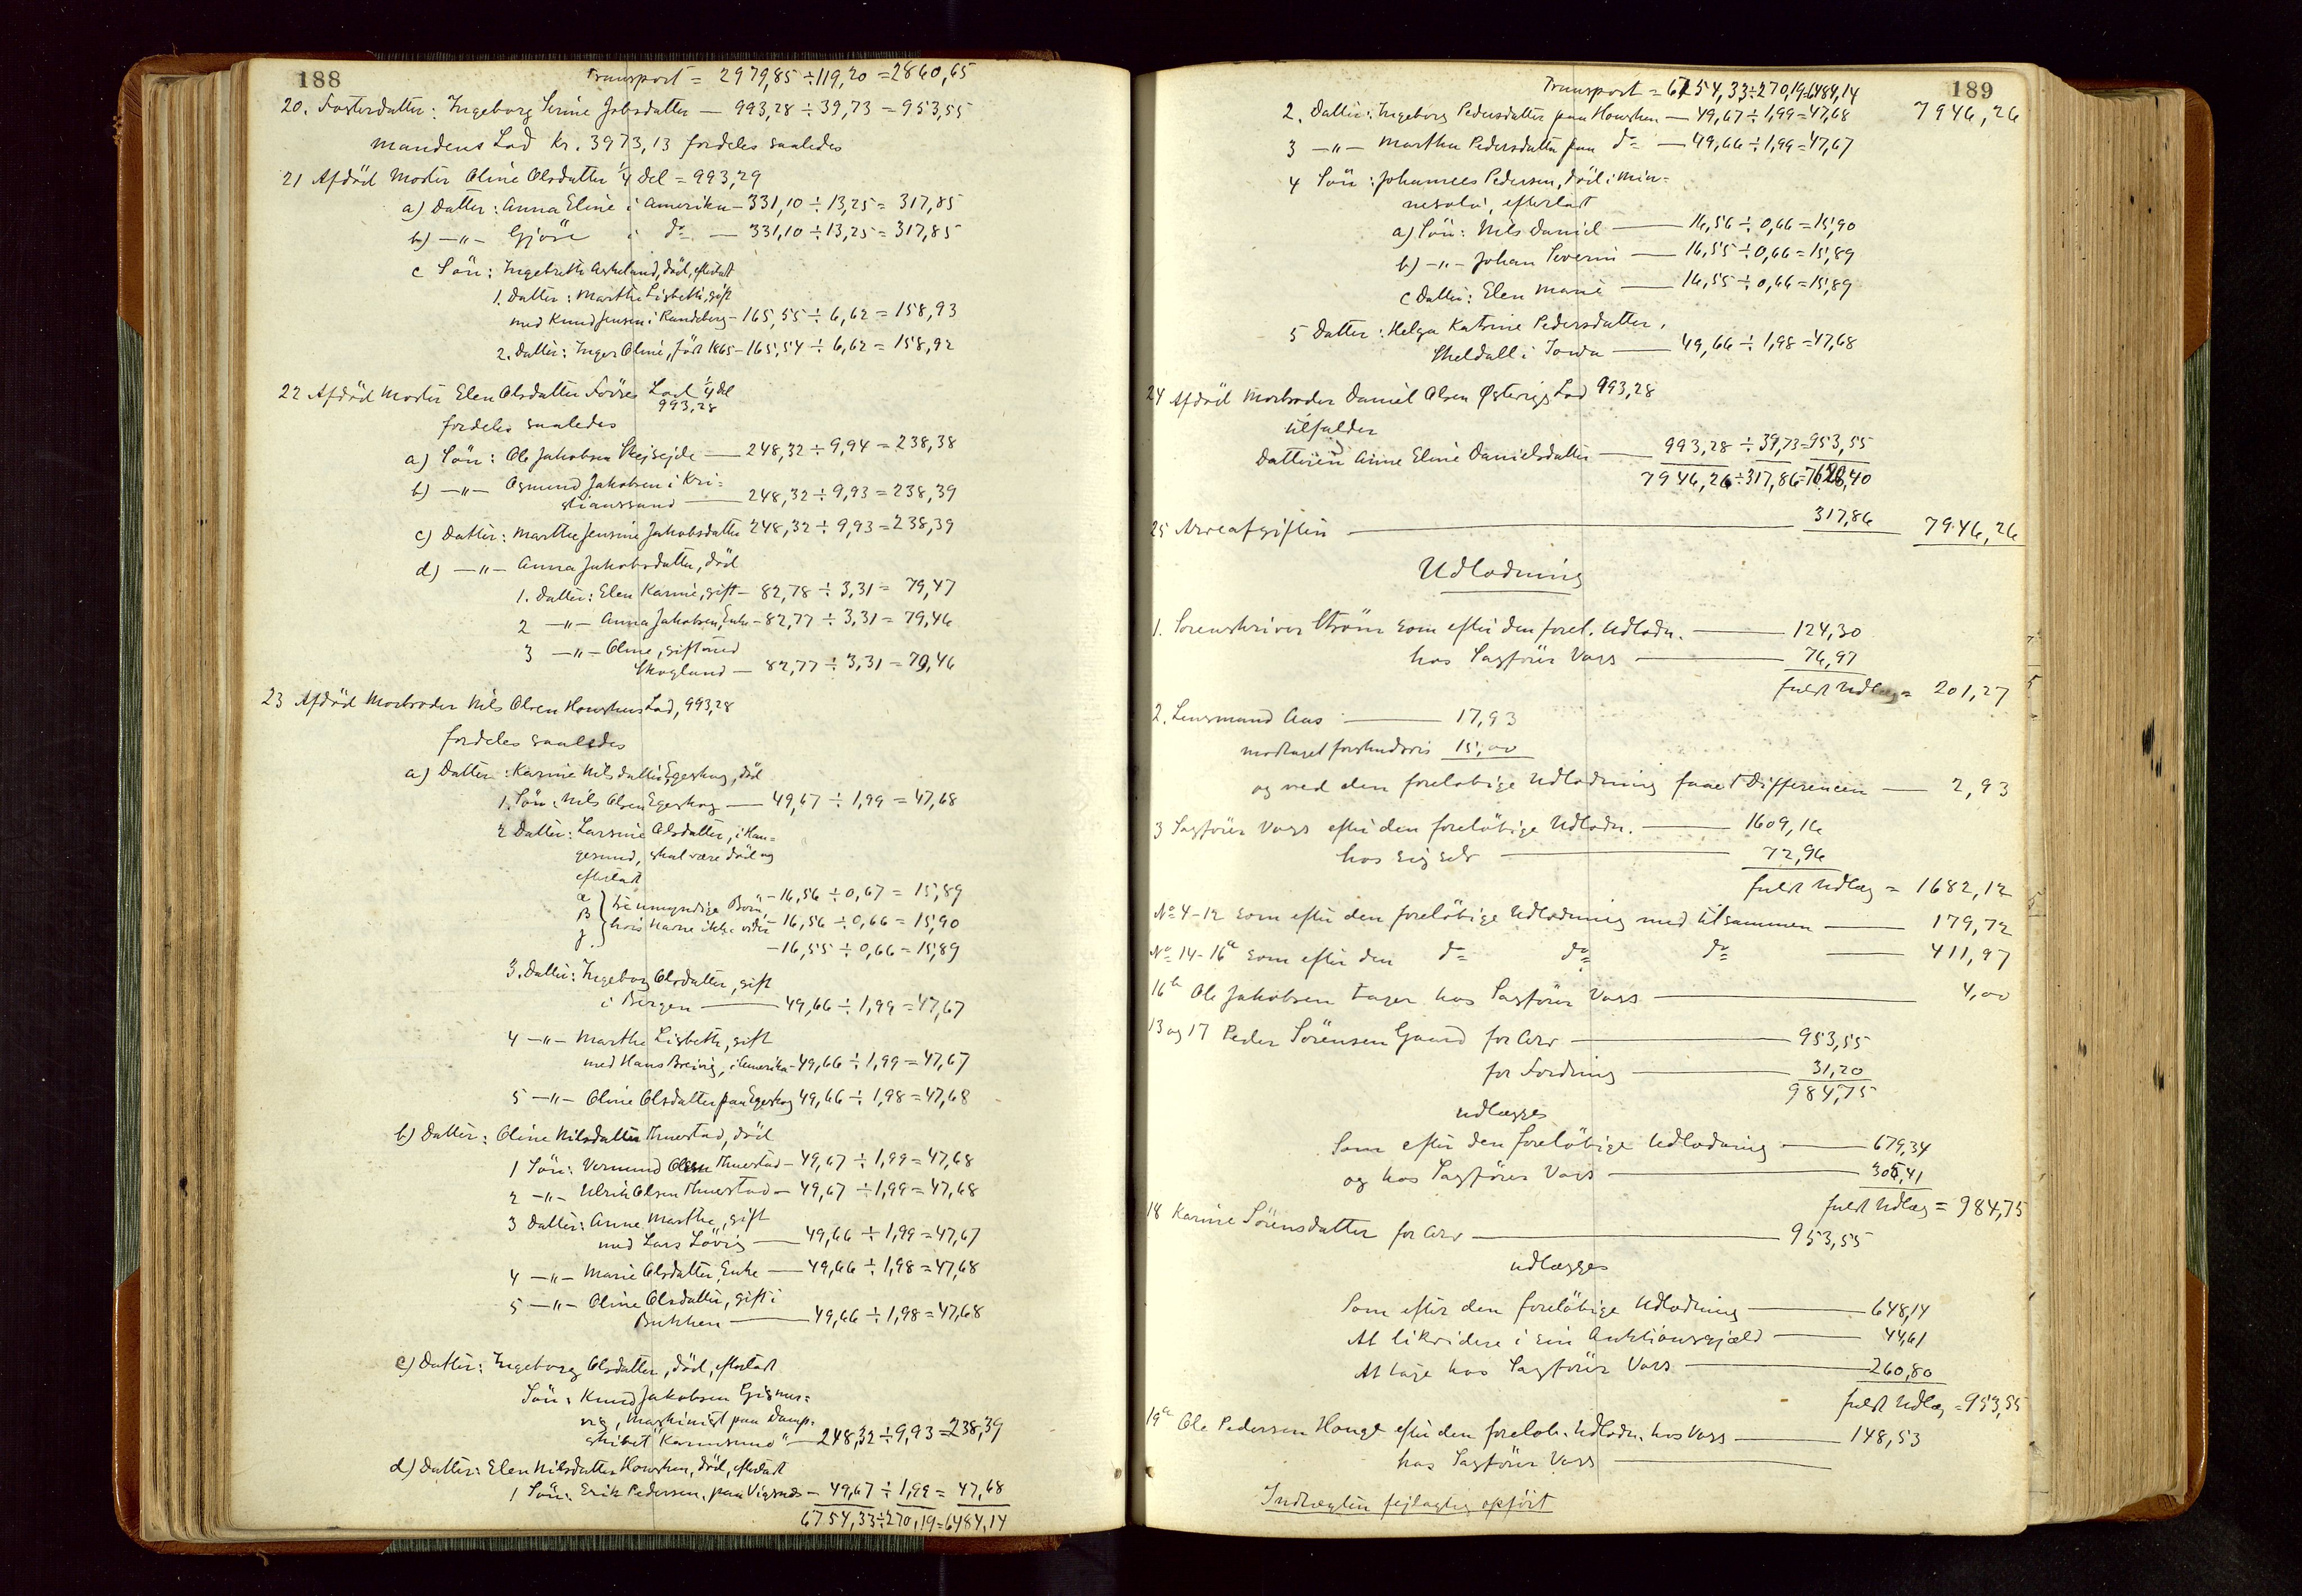 188
Transport = 2979,85 ÷ 119,20 = 2860,65
20. Fosterdatter: Ingeborg Serine Jobsdatter — 993,28 ÷ 39,73 = 953,55
Mandens Lod Kr. 3973,13 fordeles saaledes
21 Afdöd Moster Oline Olsdatter 1/4 Del = 993,29
a) Datter: Anna Eline i Amerika — 331,10 ÷ 13,25 = 317,85
b) —"— Gjöre i do — 331,10 ÷ 13,25 = 317,85
c Sön: Ingebreth Askeland, död, efterladt
1. Datter: Marthe Lisbeth, gift
med Knud Jensen i Randeberg — 165,55 ÷ 6,62 = 158,93
2. Datter: Inger Oline, född 1865 — 165,54 ÷ 6,62 = 158,92
22 Afdöd Moster Elen Olsdatter Förres Lod 1/4 Del
993,28
fordeles saaledes
a) Sön: Ole Jakobsen Skejsejde — 248,32 ÷ 9,94 = 238,38
b) —"— Asmund Jakobsen i Kri=
stianssund — 248,32 ÷ 9,93 = 238,39
c) Datter: Marthe Jensine Jakobsdatter 248,32 ÷ 9,93 = 238,39
d) —"— Anna Jakobsdatter, död
1. Datter: Elen Karine, gift — 82,78 ÷ 3,31 = 79,47
2 —"— Anna Jakobsen, Enke — 82,77 ÷ 3,31 = 79,46
3 —"— Oline, gift med
Skoglund — 82,77 ÷ 3,31 = 79,46
23 Afdöd Morbroder Nils Olsen Houskens Lod, 993,28
fordeles saaledes
a) Datter: Karine Nilsdatter Egeskog, död
1. Sön: Nils Olsen Egeskog — 49,67 ÷ 1,99 = 47,68
2 Datter: Larsine Olsdatter, i Hau=
gesund, skal være död og
efterladt
α } tre umyndige Börn, — 16,56 ÷ 0,67 = 15,89
β } hvis Navne ikke vides — 16,56 ÷ 0,66 = 15,90
γ } — 16,55 ÷ 0,66 = 15,89
3. Datter: Ingeborg Olsdatter, gift
i Bergen — 49,66 ÷ 1,99 = 47,67
4 —"— Marthe Lisbeth, gift
med Hans Breivig, i Amerika — 49,66 ÷ 1,99 = 47,67
5 —"— Oline Olsdatter paa Egeskog 49,66 ÷ 1,98 = 47,68
b) Datter: Oline Nilsdatter Thuestad, död
1 Sön: Vermund Olsen Thuestad — 49,67 ÷ 1,99 = 47,68
2 —"— Ulrik Olsen Thuestad — 49,67 ÷ 1,99 = 47,68
3 Datter: Anne Marthe, gift
med Lars Lövig — 49,66 ÷ 1,99 = 47,67
4 —"— Marie Olsdatter, Enke — 49,66 ÷ 1,98 = 47,68
5 —"— Oline Olsdatter, gift i
Bukken — 49,66 ÷ 1,98 = 47,68
c) Datter: Ingeborg Olsdatter, död, efterladt
Sön: Knud Jakobsen Gismer=
vig, Maskinist paa Damp=
skibet "Karmsund" — 248,32 ÷ 9,93 = 238,39
d) Datter: Elen Nilsdatter Housken, död, efterladt
1 Sön: Erik Pedersen, paa Visnæs — 49,67 ÷ 1,99 = 47,68
6754,33 ÷ 270,19 = 6484,14
189
Transport = 6754,33 ÷ 270,19 = 6484,14
2. Datter: Ingeborg Pedersdatter paa Housken — 49,67 ÷ 1,99 = 47,68 7946,26
3 —"— Martha Pedersdatter paa do — 49,66 ÷ 1,99 = 47,67
4 Sön: Johannes Pedersen, död i Min=
nesota, efterladt
a) Sön: Nils Daniel — 16,56 ÷ 0,66 = 15,90
b) —"— Johan Severin — 16,55 ÷ 0,66 = 15,89
c Datter: Elen Marie — 16,55 ÷ 0,66 = 15,89
5 Datter: Helga Katrine Pedersdatter,
Sheldall i Iowa — 49,66 ÷ 1,98 = 47,68
24 Afdöd Morbroder Daniel Olsen Østevigs Lod 993,28
tilfalder
Datteren Anne Eline Danielsdatter — 993,28 ÷ 39,73 = 953,55
7946,26 ÷ 317,86 = 7628,40
25 Arveafgiften — 317,86 7946,26
Udlodning
1. Sorenskriver Ström som efter den forel. Udlodn. — 124,30
hos Sagförer Vass — 76,97
fuldt Udlæg = 201,27
2. Lensmand Aas — 17,93
modtaget forskudsvis 15,00
og ved den forelöbige Udlodning faaet Differencen — 2,93
3 Sagförer Vass efter den forelöbige Udlodn. — 1609,16
hos sig selv — 72,96
fuldt Udlæg = 1682,12
No 4-12 som efter den forelöbige Udlodning med tilsammen — 179,72
No 14-16a som efter den do do do — 411,97
16b Ole Jakobsen tager hos Sagförer Vass — 4,00
13 og 17 Peder Sörensen Gaard for Arv — 953,55
for Fordring — 31,20
984,75
udlægges
Som efter den forelöbige Udlodning — 679,34
og hos Sagförer Vass — 305,41
fuldt Udlæg = 984,75
18 Karine Sörensdatter for Arv — 953,55
udlægges
Som efter den forelöbige Udlodning — 648,14
At likvidere i sin Auktionsgjæld — 44,61
At tage hos Sagförer Vass — 260,80
fuldt Udlæg = 953,55
19a Ole Pedersen Hauge efter den foreløb. Udlodn. hos Vass — 148,53
hos Sagförer Vass —
Indtægten fejlagtig opfört